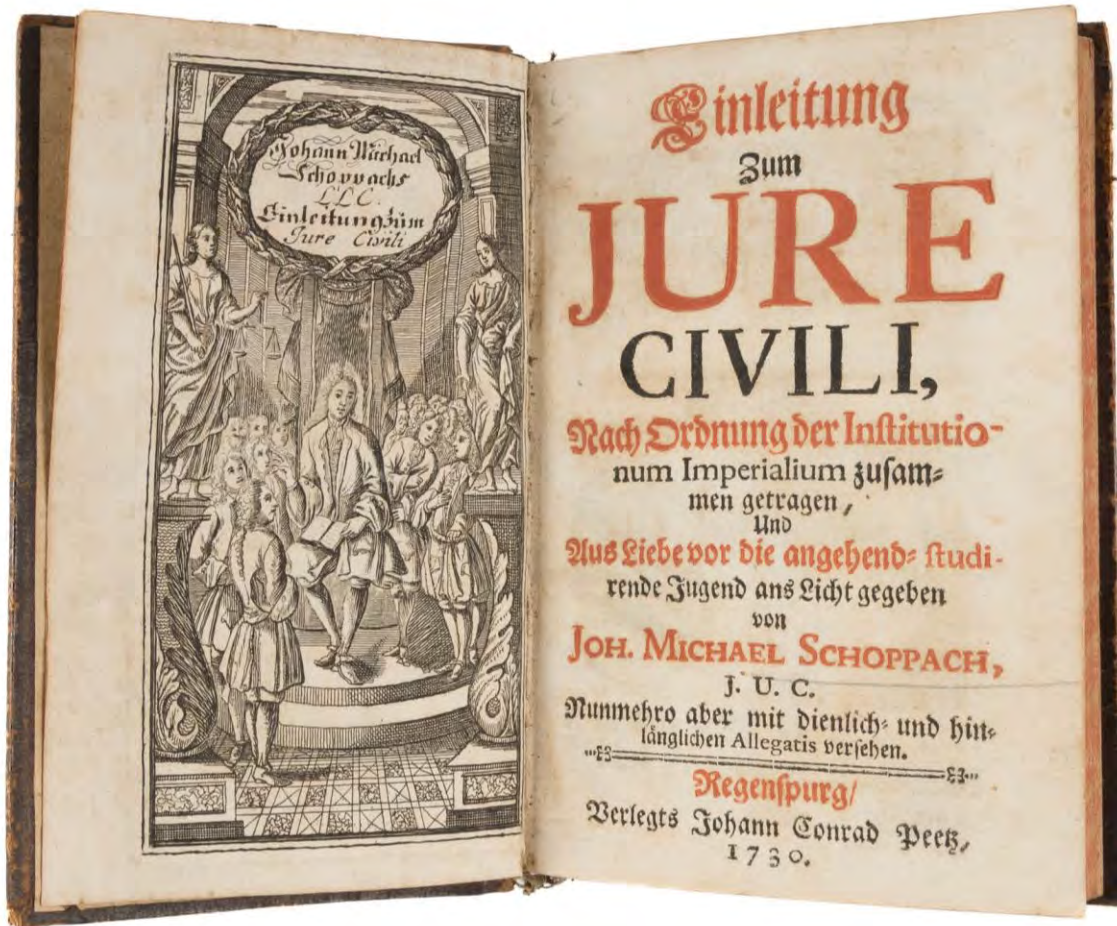 Johann Michael
Schoppachs
LLC.
Einleitung zum
Jure Civili
Einleitung
Zum
JURE
CIVILI,
Nach Ordnung der Institutio-
num Imperialium zusam-
men getragen,
Und
Aus Liebe vor die angehend- studi-
rende Jugend ans Licht gegeben
von
JOH. MICHAEL SCHOPPACH,
J. U. C.
Nunmehro aber mit dienlich- und hin-
länglichen Allegatis versehen.
Regenspurg/
Verlegts Johann Conrad Peetz,
1730.